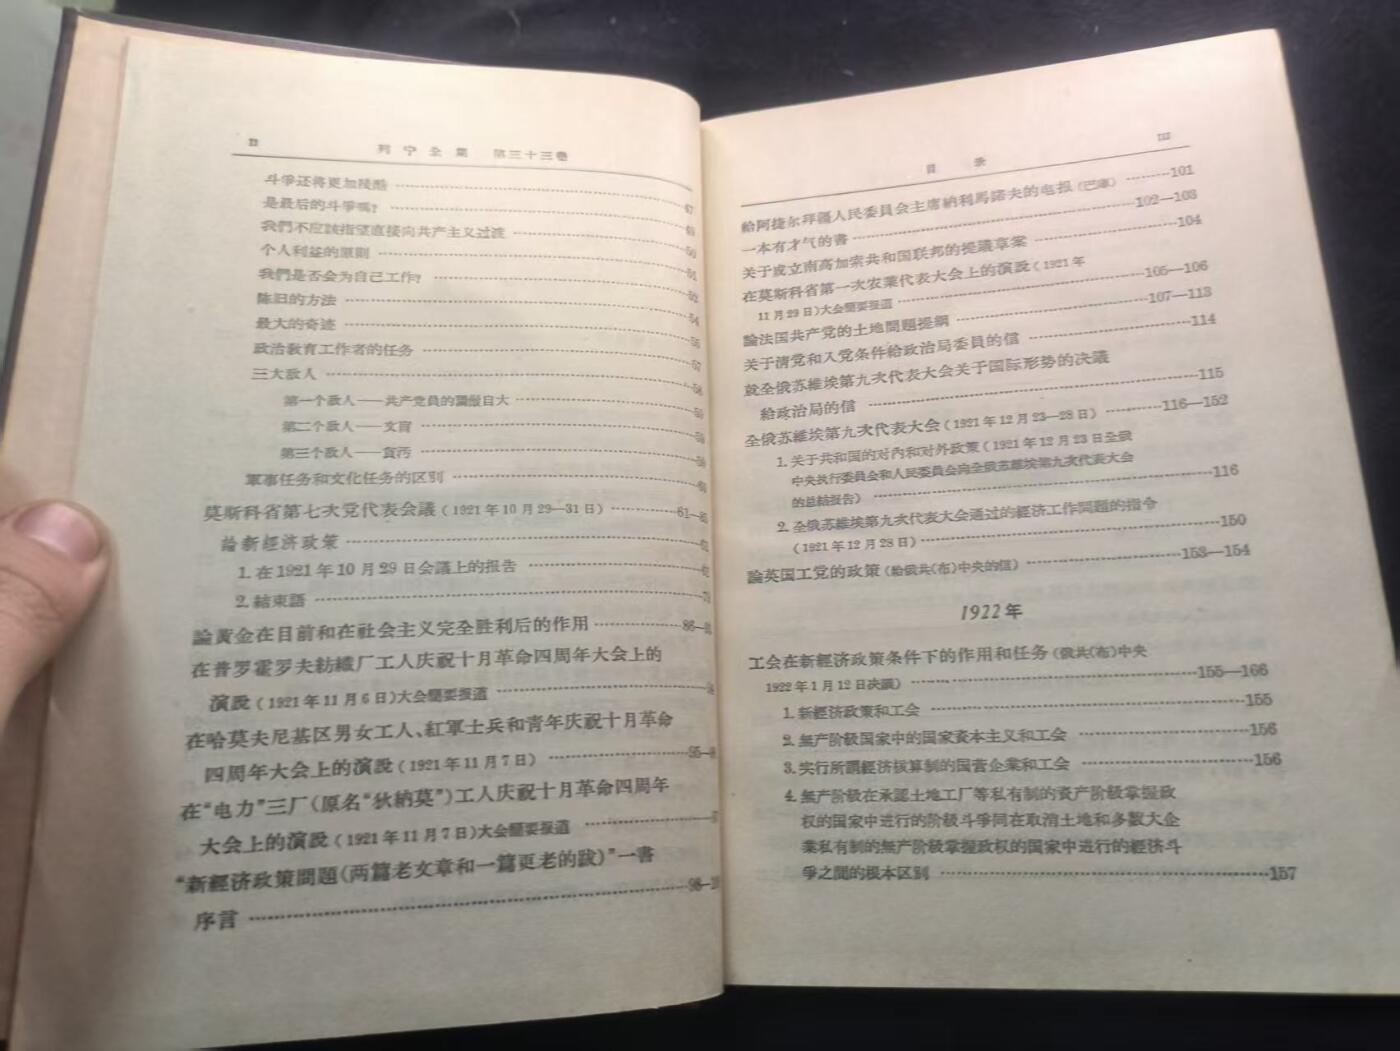 II 列宁全集 第三十三卷
斗爭还将更加殘酷 47
是最后的斗爭嗎? 49
我們不应該指望直接向共产主义过渡 50
个人利益的原則 51
我們是否会为自己工作? 52
陈旧的方法 54
最大的奇迹 56
政治敎育工作者的任务 57
三大敌人 58
第一个敌人——共产党員的驕傲自大 59
第二个敌人——文盲 59
第三个敌人——貪汚 59
軍事任务和文化任务的区別 60
莫斯科省第七次党代表会議(1921年10月29—31日) 61—85
論新經济政策 61
1. 在1921年10月29日会議上的报告 62
2. 結束語
論黃金在目前和在社会主义完全胜利后的作用 86—
在普罗霍罗夫紡織厂工人庆祝十月革命四周年大会上的
演說(1921年11月6日)大会簡要报道
在哈莫夫尼基区男女工人、紅軍士兵和青年庆祝十月革命
四周年大会上的演說(1921年11月7日) 95—
在“电力”三厂(原名“狄納莫”)工人庆祝十月革命四周年
大会上的演說(1921年11月7日)大会簡要报道
“新經济政策問題(两篇老文章和一篇更老的跋)”一書
序言 98—
目录 III
給阿捷尔拜疆人民委員会主席納利馬諾夫的电报(巴庫) 101
一本有才气的書 102—103
关于成立南高加索共和国联邦的提議草案 104
在莫斯科省第一次农業代表大会上的演說(1921年
11月29日)大会簡要报道 105—106
論法国共产党的土地問題提綱 107—113
关于清党和入党条件給政治局委員的信 114
就全俄苏維埃第九次代表大会关于国际形势的决議
給政治局的信 115
全俄苏維埃第九次代表大会(1921年12月23—28日) 116—152
1. 关于共和国的对內和对外政策(1921年12月23日全俄
中央执行委員会和人民委員会向全俄苏維埃第九次代表大会
的总結报告) 116
2. 全俄苏維埃第九次代表大会通过的經济工作問題的指令
(1921年12月28日) 150
論英国工党的政策(給俄共(布)中央的信) 153—154
1922年
工会在新經济政策条件下的作用和任务(俄共(布)中央
1922年1月12日决議) 155—166
1. 新經济政策和工会 155
2. 無产阶級国家中的国家資本主义和工会 156
3. 实行所謂經济核算制的国营企業和工会 156
4. 無产阶級在承認土地工厂等私有制的資产阶級掌握政
权的国家中进行的阶級斗爭同在取消土地和多数大企
業私有制的無产阶級掌握政权的国家中进行的經济斗
爭之間的根本区別 157